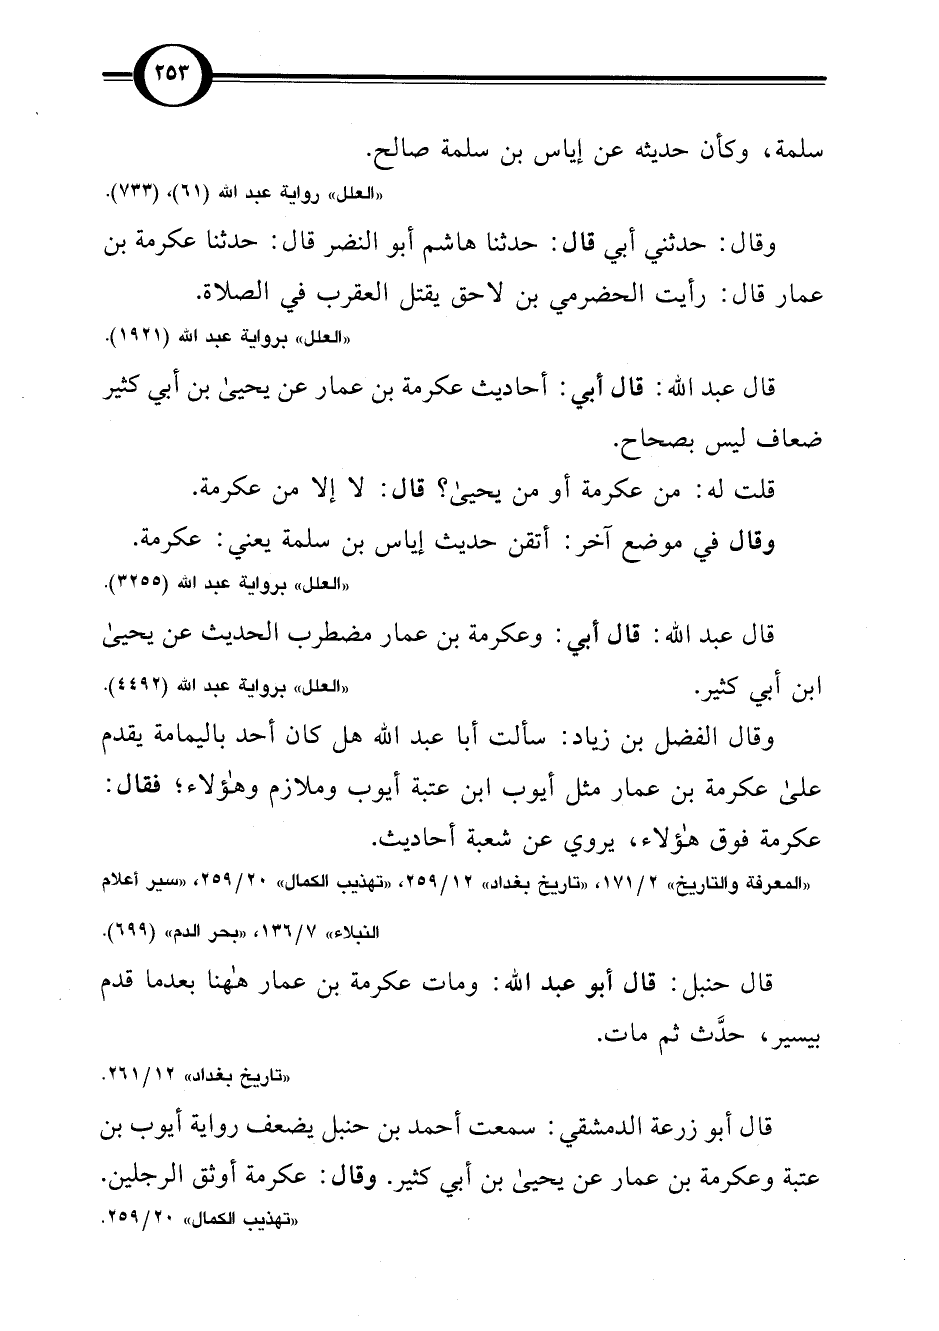 ٢٥٣
سلمة، وكأن حديثه عن إياس بن سلمة صالح.
«العلل» رواية عبد الله (٦١)، (٧٣٣).
وقال: حدثني أبي قال: حدثنا هاشم أبو النضر قال: حدثنا عكرمة بن
عمار قال: رأيت الحضرمي بن لاحق يقتل العقرب في الصلاة.
«العلل» برواية عبد الله (١٩٢١).
قال عبد الله: قال أبي: أحاديث عكرمة بن عمار عن يحيىٰ بن أبي كثير
ضعاف ليس بصحاح.
قلت له: من عكرمة أو من يحيىٰ؟ قال: لا إلا من عكرمة.
وقال في موضع آخر: أتقن حديث إياس بن سلمة يعني: عكرمة.
«العلل» برواية عبد الله (٣٢٥٥).
قال عبد الله: قال أبي: وعكرمة بن عمار مضطرب الحديث عن يحيىٰ
ابن أبي كثير. «العلل» برواية عبد الله (٤٤٩٢).
وقال الفضل بن زياد: سألت أبا عبد الله هل كان أحد باليمامة يقدم
علىٰ عكرمة بن عمار مثل أيوب ابن عتبة أيوب وملازم وهؤلاء؛ فقال:
عكرمة فوق هؤلاء، يروي عن شعبة أحاديث.
«المعرفة والتاريخ» ٢/ ١٧١، «تاريخ بغداد» ١٢/ ٢٥٩، «تهذيب الكمال» ٢٠/ ٢٥٩، «سير أعلام
النبلاء» ٧/ ١٣٦، «بحر الدم» (٦٩٩).
قال حنبل: قال أبو عبد الله: ومات عكرمة بن عمار هٰهنا بعدما قدم
بيسير، حدَّث ثم مات.
«تاريخ بغداد» ١٢/ ٢٦١.
قال أبو زرعة الدمشقي: سمعت أحمد بن حنبل يضعف رواية أيوب بن
عتبة وعكرمة بن عمار عن يحيىٰ بن أبي كثير. وقال: عكرمة أوثق الرجلين.
«تهذيب الكمال» ٢٠/ ٢٥٩.